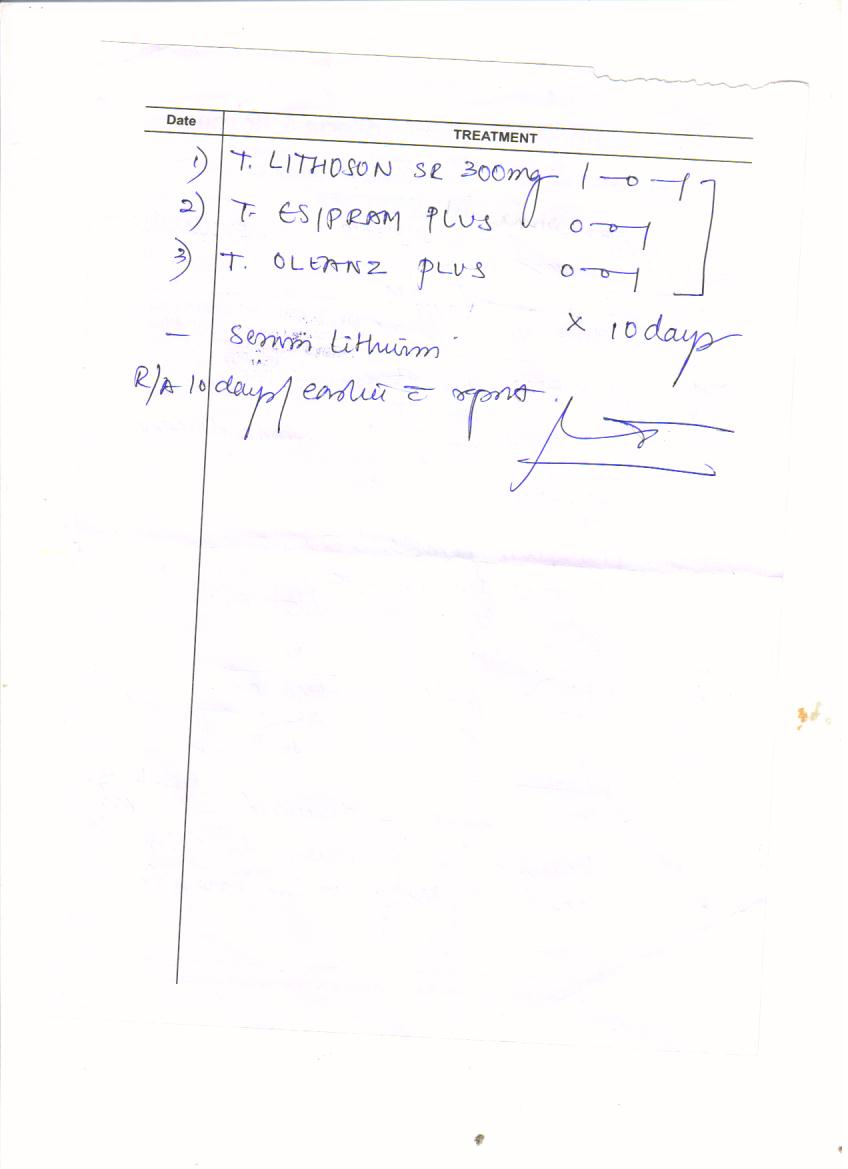 Date TREATMENT
1) T. LITHOSON SR 300mg 1-0-1
2) T. ESIPRAM PLUS 0-0-1
3) T. OLEANZ PLUS 0-0-1
x 10 days
- Serum Lithium
R/A 10 days/ earlier c̄ report.